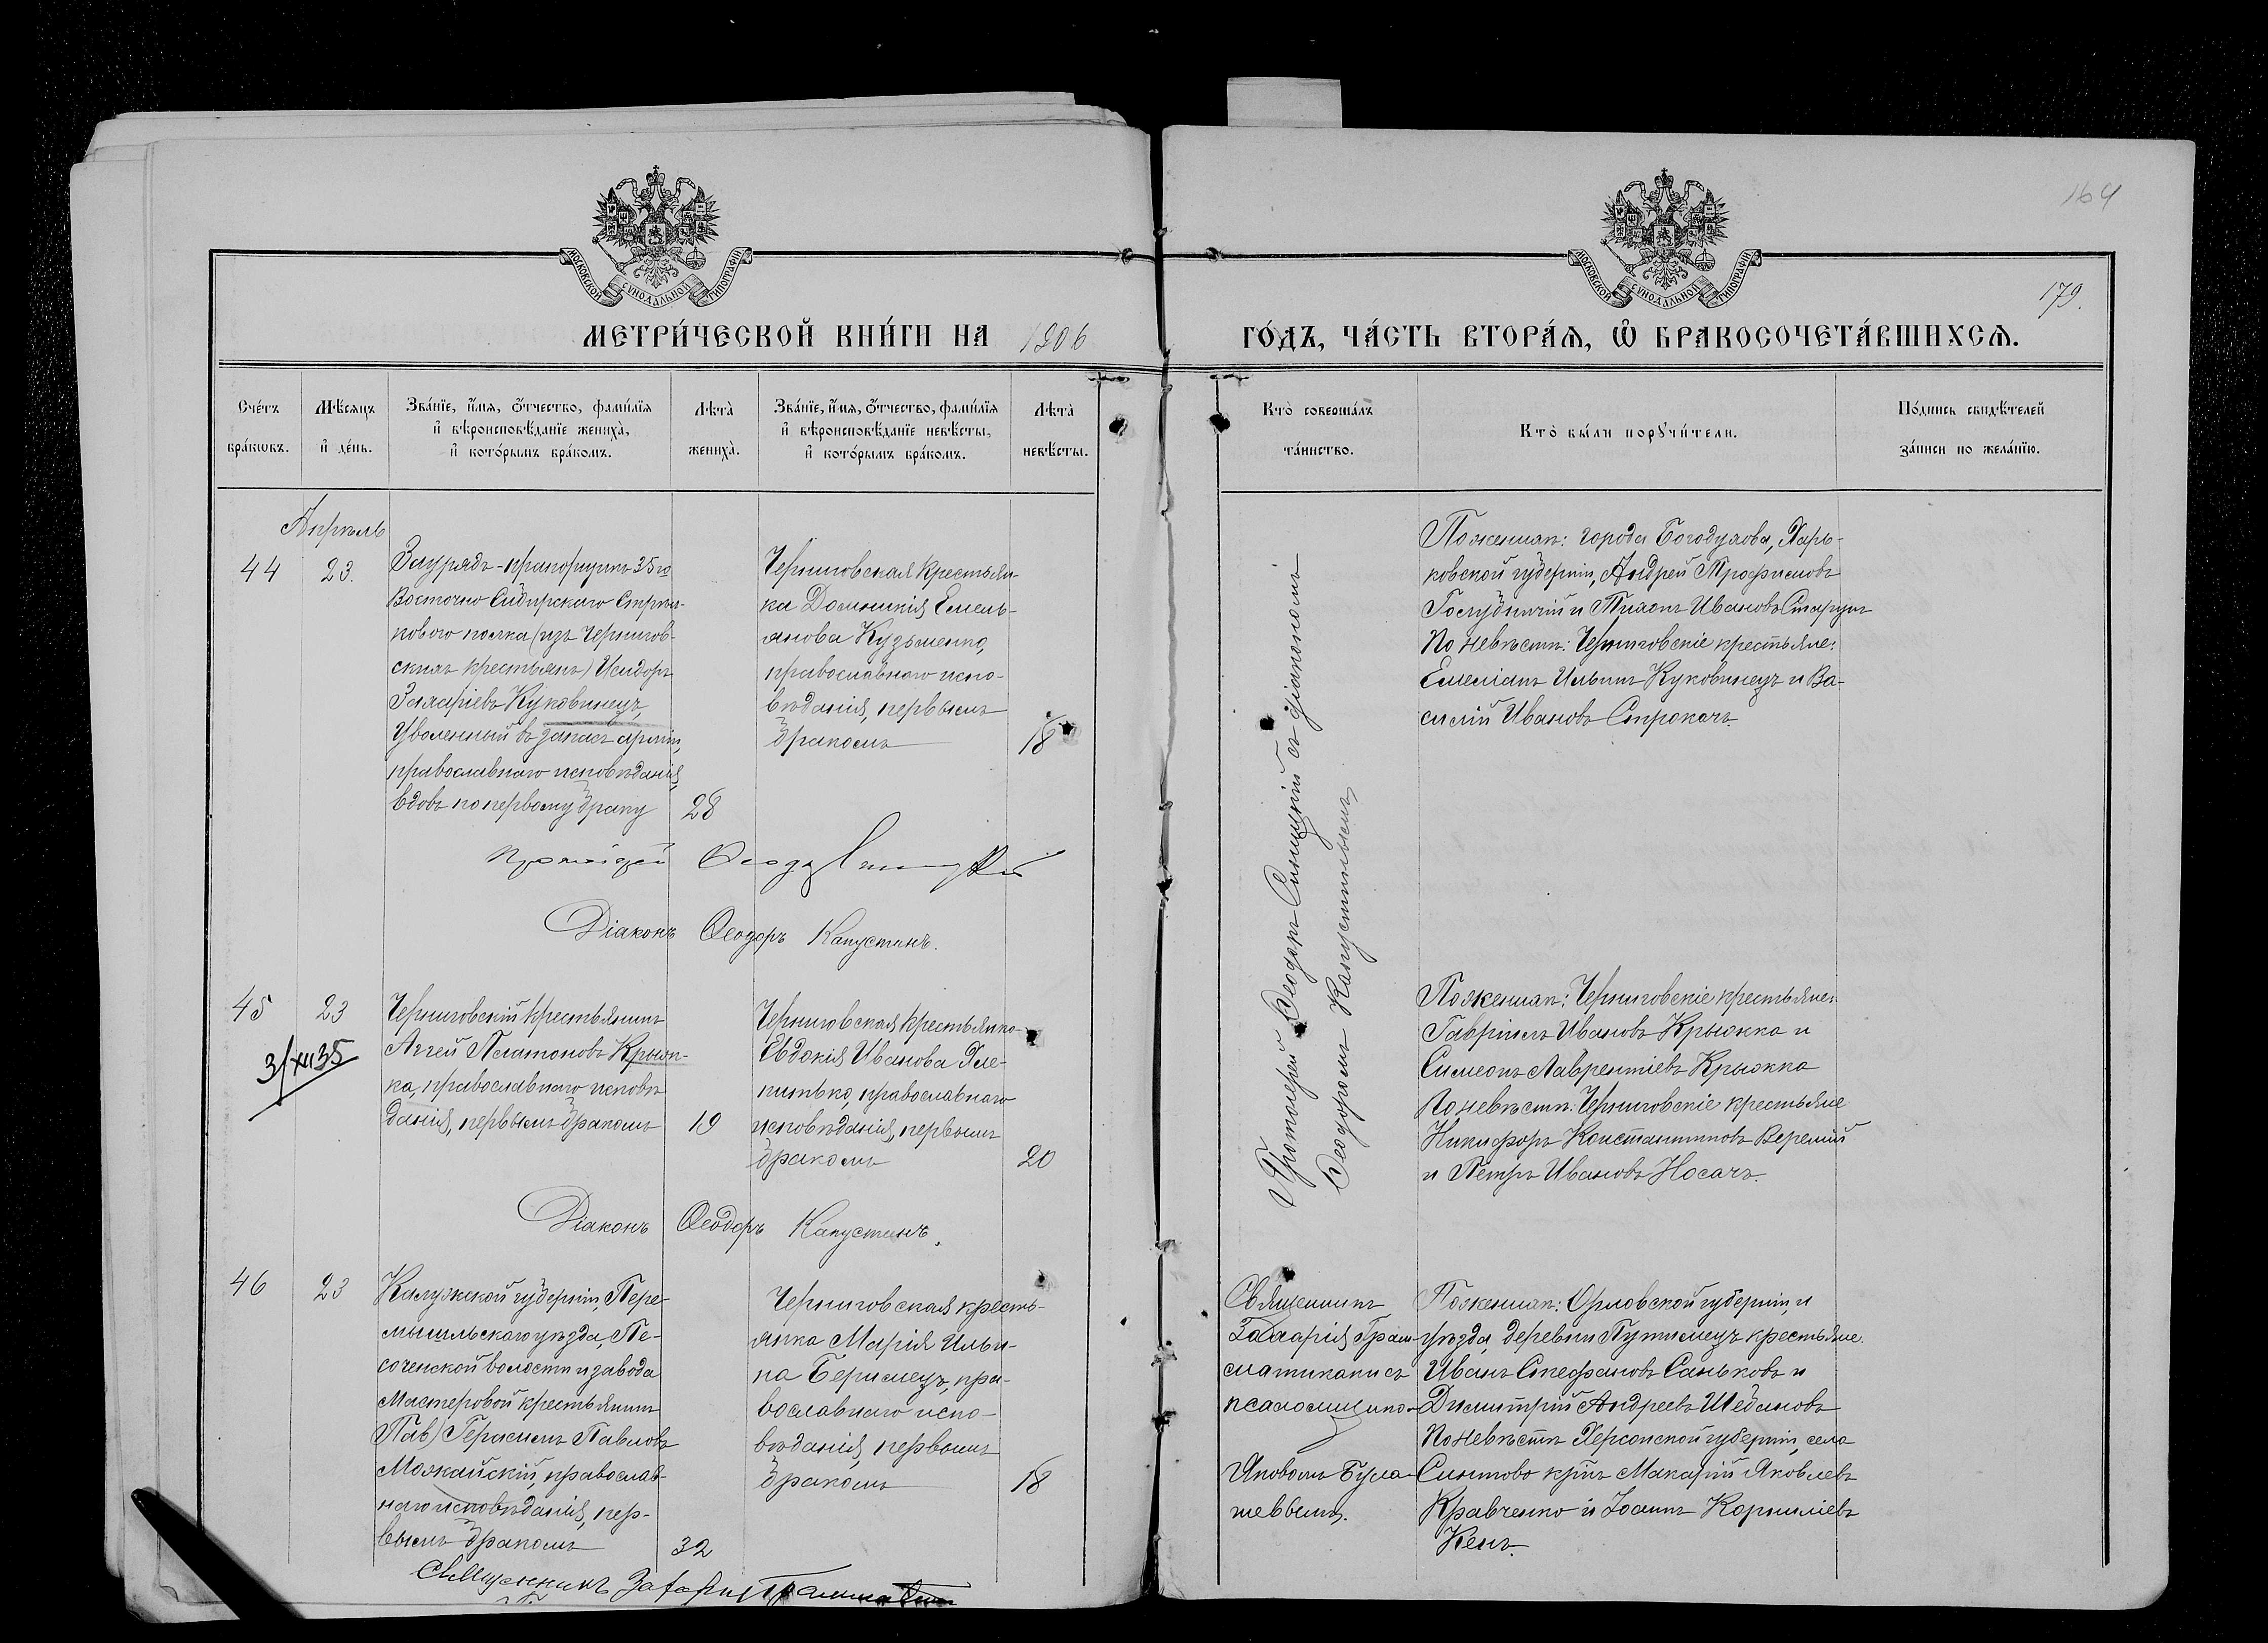 164
МОСКОВСКОЙ СѴНОДАЛЬНОЙ ТИПОГРАФІИ
МОСКОВСКОЙ СѴНОДАЛЬНОЙ ТИПОГРАФІИ
179.
МЕТРИ́ЧЕСКОЙ КНИ́ГИ НА 1906 ГО́ДЪ, ЧА́СТЬ ВТОРА́Я, Ѡ БРАКОСОЧЕТА́ВШИХСѦ.
Сче́тъ
бра́кωвъ.
Мѣ́сяцъ
и҆ де́нь.
Зва́нїе, и҆́мя, ѻ҆́тчество, фами́лїя
и҆ вѣроисповѣ́данїе жениха̀,
и҆ кото́рымъ бра́комъ.
Лѣта̀
жениха̀.
Зва́нїе, и҆́мя, ѻ҆́тчество, фами́лїя
и҆ вѣроисповѣ́данїе невѣ́сты,
и҆ кото́рымъ бра́комъ.
Лѣта̀
невѣ́сты.
Кто̀ соверша́лъ
та́инство.
Кто̀ бы́ли порꙋчи́тели.
По́дпись свидѣ́телей
за́писи по жела́нїю.
Апрѣль
44
23.
Зауряд-прапорщикъ 35го
Восточно Сибирскаго Стрѣл-
коваго полка (изъ Чернигов-
скихъ крестьянъ) Исидоръ
Захаріевъ Куковинецъ,
Уволенный въ запасъ арміи,
православнаго исповѣданія,
вдовъ по первому браку
28
Черниговская крестьян-
ка Домникія Емель-
янова Кузьменко,
православнаго испо-
вѣданія, первымъ
бракомъ
18
Протоіерей Ѳеодоръ Синицкій съ діакономъ
Ѳеодоромъ Капустинымъ,
По женихѣ: города Богодухова, Харь-
ковской губерніи, Андрей Трофимовъ
и Тихонъ Ивановъ Старунъ
По невѣстѣ: Черниговскіе крестьяне:
Емеліанъ Ильинъ Куковинецъ и Ва-
силій Ивановъ Строкачъ.
Протоіерей Ѳеодоръ Синицкій
Діаконъ Ѳеодоръ Капустинъ.
45
23
3/XII 35
Черниговскій крестьянинъ
Аггей Платоновъ Крыжк-
ка, православнаго исповѣ-
данія, первымъ бракомъ
19
Черниговская крестьянка
Евдокія Иванова Хле-
питько, православнаго
исповѣданія, первымъ
бракомъ
20
По женихѣ: Черниговскіе крестьяне:
Гавріилъ Ивановъ Крыжка и
Симеонъ Лаврентіевъ Крыжка
По невѣстѣ: Черниговскіе крестьяне
Никифоръ Константиновъ Веремій
и Петръ Ивановъ Носачъ.
Діаконъ Ѳеодоръ Капустинъ.
46
23
Калужской губерніи, Пере-
мышльскаго уѣзда, Пе-
соченской волости и завода
Мастеровой крестьянинъ
Герасимъ Павловъ
Можайскій, православ-
наго исповѣданія, пер-
вымъ бракомъ
32
Черниговская кресть-
янка Марія Ильи-
на Беримецъ, пра-
вославнаго испо-
вѣданія, первымъ
бракомъ
18
Священникъ
Захарія Грам-
матикати съ
псаломщико-
Яковомъ Була-
шевымъ.
По женихѣ: Орловской губерніи, и
уѣзда, деревни Путимецъ крестьяне
Иванъ Стефановъ Саньковъ и
Димитрій Андреевъ Шебановъ
По невѣстѣ Херсонской губерніи, села
Синтово кр҃нъ Макарій Яковлевъ
Кравченко и Іоаннъ Корниліевъ
Кенъ.
Священникъ Захарія